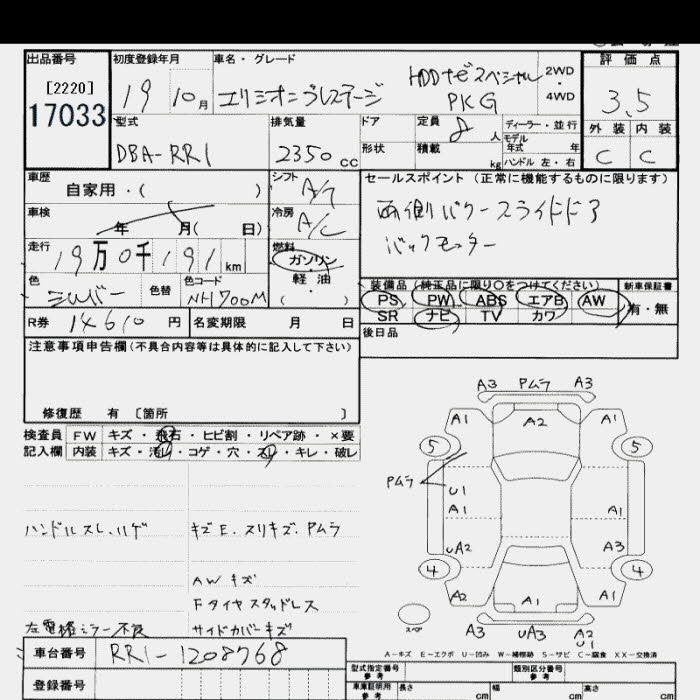 出品番号 初度登録年月 車名・グレード 評価点
[2220]
17033
19 10月 エリシオン プレステージ HDDナビスペシャル PKG 2WD・4WD
3.5
型式 排気量 ドア 定員 ディーラー・並行 外装 内装
DBA-RR1 2350cc 形状 8人 積載 kg モデル年式 年 ハンドル 左・右 C C
車歴 シフト セールスポイント(正常に機能するものに限ります)
自家用・( ) A/T
車検 冷房 両側パワースライドドア
年 月( 日) A/C バックモニター
走行 燃料
19万0千191km ガソリン・軽油( )
色 色替 色コード 装備品(純正品に限り○をつけてください) 新車保証書
シルバー NH700M PS PW ABS エアB AW 有・無
SR ナビ TV カワ
R券 14610円 名変期限 月 日 後日品
注意事項申告欄(不具合内容等は具体的に記入して下さい)
修復歴 有〔箇所 〕
検査員 FW キズ・飛石・ヒビ割・リペア跡・×要
記入欄 内装 キズ・汚レ・コゲ・穴・スレ・キレ・破レ
A3 PムラA3
A1 A2 A1
5 5
Pムラ
U1
A1 A1
UA2 A3
4 4
A2 A1 A1
スペア A3 UA3 A2 U1
ハンドルスレ、ハゲ キズE.スリキズ.Pムラ
AWキズ
Fタイヤスタッドレス
左電格ミラー不良 サイドカバーキズ
A−キズ E−エクボ U−凹み W−補修跡 S−サビ C−腐食 XX−交換済
車台番号 RR1-1208768
登録番号
型式指定番号 参考 類別区分番号 参考
車庫証明用 参考 長さ cm 幅 cm 高さ cm